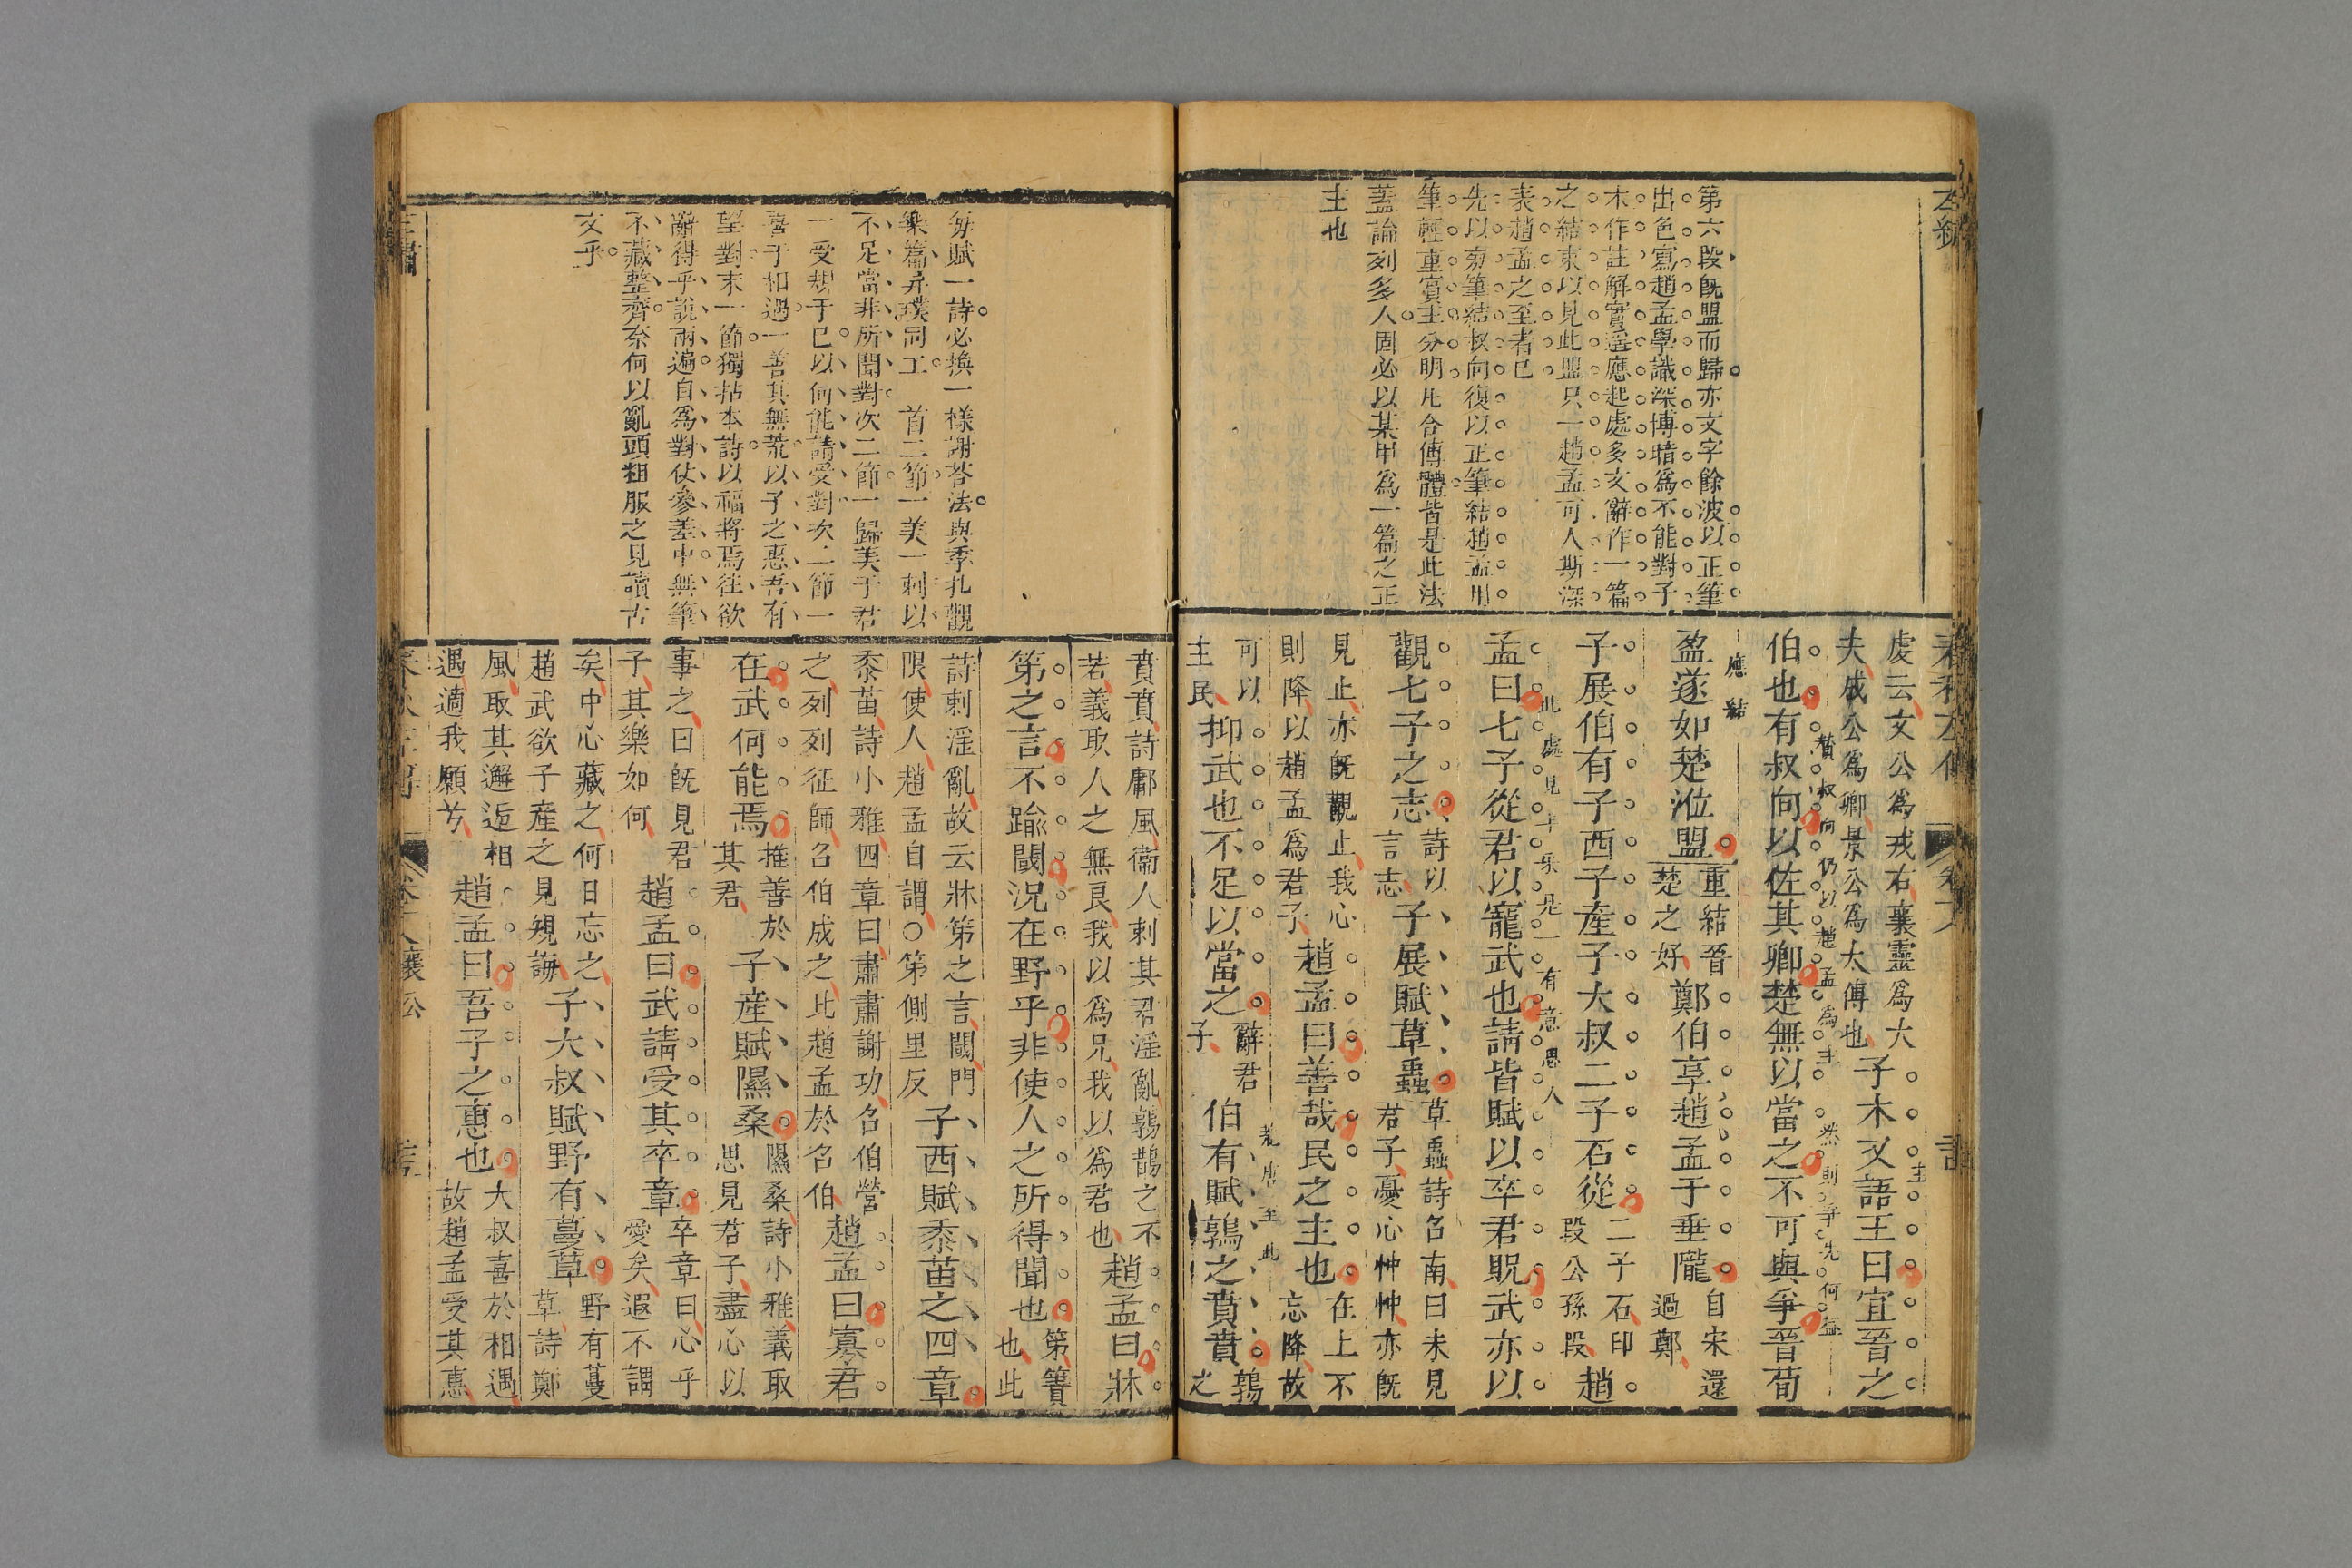 第六段既盟而歸亦文字餘波以正筆
出色寫趙孟學識深博暗為不能對子
木作註解實遥應起處多文辭作一篇
之結束以見此盟只一趙孟可人斯深
表趙孟之至者已
先以旁筆結叔向復以正筆結趙孟用
筆輕重賓主分明凡合傳體皆是此法
蓋論列多人固必以某甲為一篇之正
主也
處云文公為戎右襄靈為大
夫成公為卿景公為太傅也
子木又語王曰宜晉之
主
伯也有叔向以佐其卿楚無以當之不可與爭晉荀
贊叔向仍以趙孟為主
然則爭先何益
盈遂如楚涖盟
應結
重結晉
楚之好
鄭伯享趙孟于垂隴
自宋還
過鄭
子展伯有子西子產子大叔二子石從
二子石印
段公孫段
趙
孟曰七子從君以寵武也請皆賦以卒君貺武亦以
觀七子之志
詩以
言志
子展賦草蟲
草蟲詩召南曰未見
君子憂心忡忡亦既
見止亦既覯止我心
則降以趙孟為君子
趙孟曰善哉民之主也
在上不
忘降故
可以
主民
抑武也不足以當之
辭君
子
伯有賦鶉之賁賁
鶉
之
賁賁詩鄘風衛人刺其君淫亂鶉鵲之不
若義取人之無良我以為兄我以為君也
趙孟曰牀
笫之言不踰閾況在野乎非使人之所得聞也
笫簀
也此
詩刺淫亂故云牀笫之言閾門
限使人趙孟自謂○第側里反
子西賦黍苗之四章
黍苗詩小雅四章曰肅肅謝功召伯營
之列列征師召伯成之比趙孟於召伯
趙孟曰寡君
在武何能焉
推善於
其君
子產賦隰桑
隰桑詩小雅義取
思見君子盡心以
事之曰既見君
子其樂如何
趙孟曰武請受其卒章
卒章曰心乎
愛矣遐不謂
矣中心藏之何日忘之
趙武欲子產之見規誨
子大叔賦野有蔓草
野有蔓
草詩鄭
風取其邂逅相
遇適我願兮
趙孟曰吾子之惠也
大叔喜於相遇
故趙孟受其惠
每賦一詩必換一樣謝荅法與季札觀
樂篇异㩧同工 首二節一美一刺以
不足當非所聞對次二節一歸美于君
一受規于巳以何能請受對次二節一
喜于相遇一善其無荒以子之惠吾有
望對末一節獨拈本詩以福將焉往欲
辭得乎說兩遍自為對仗參差中無筆
不藏整齊奈何以亂頭粗服之見讀古
文乎